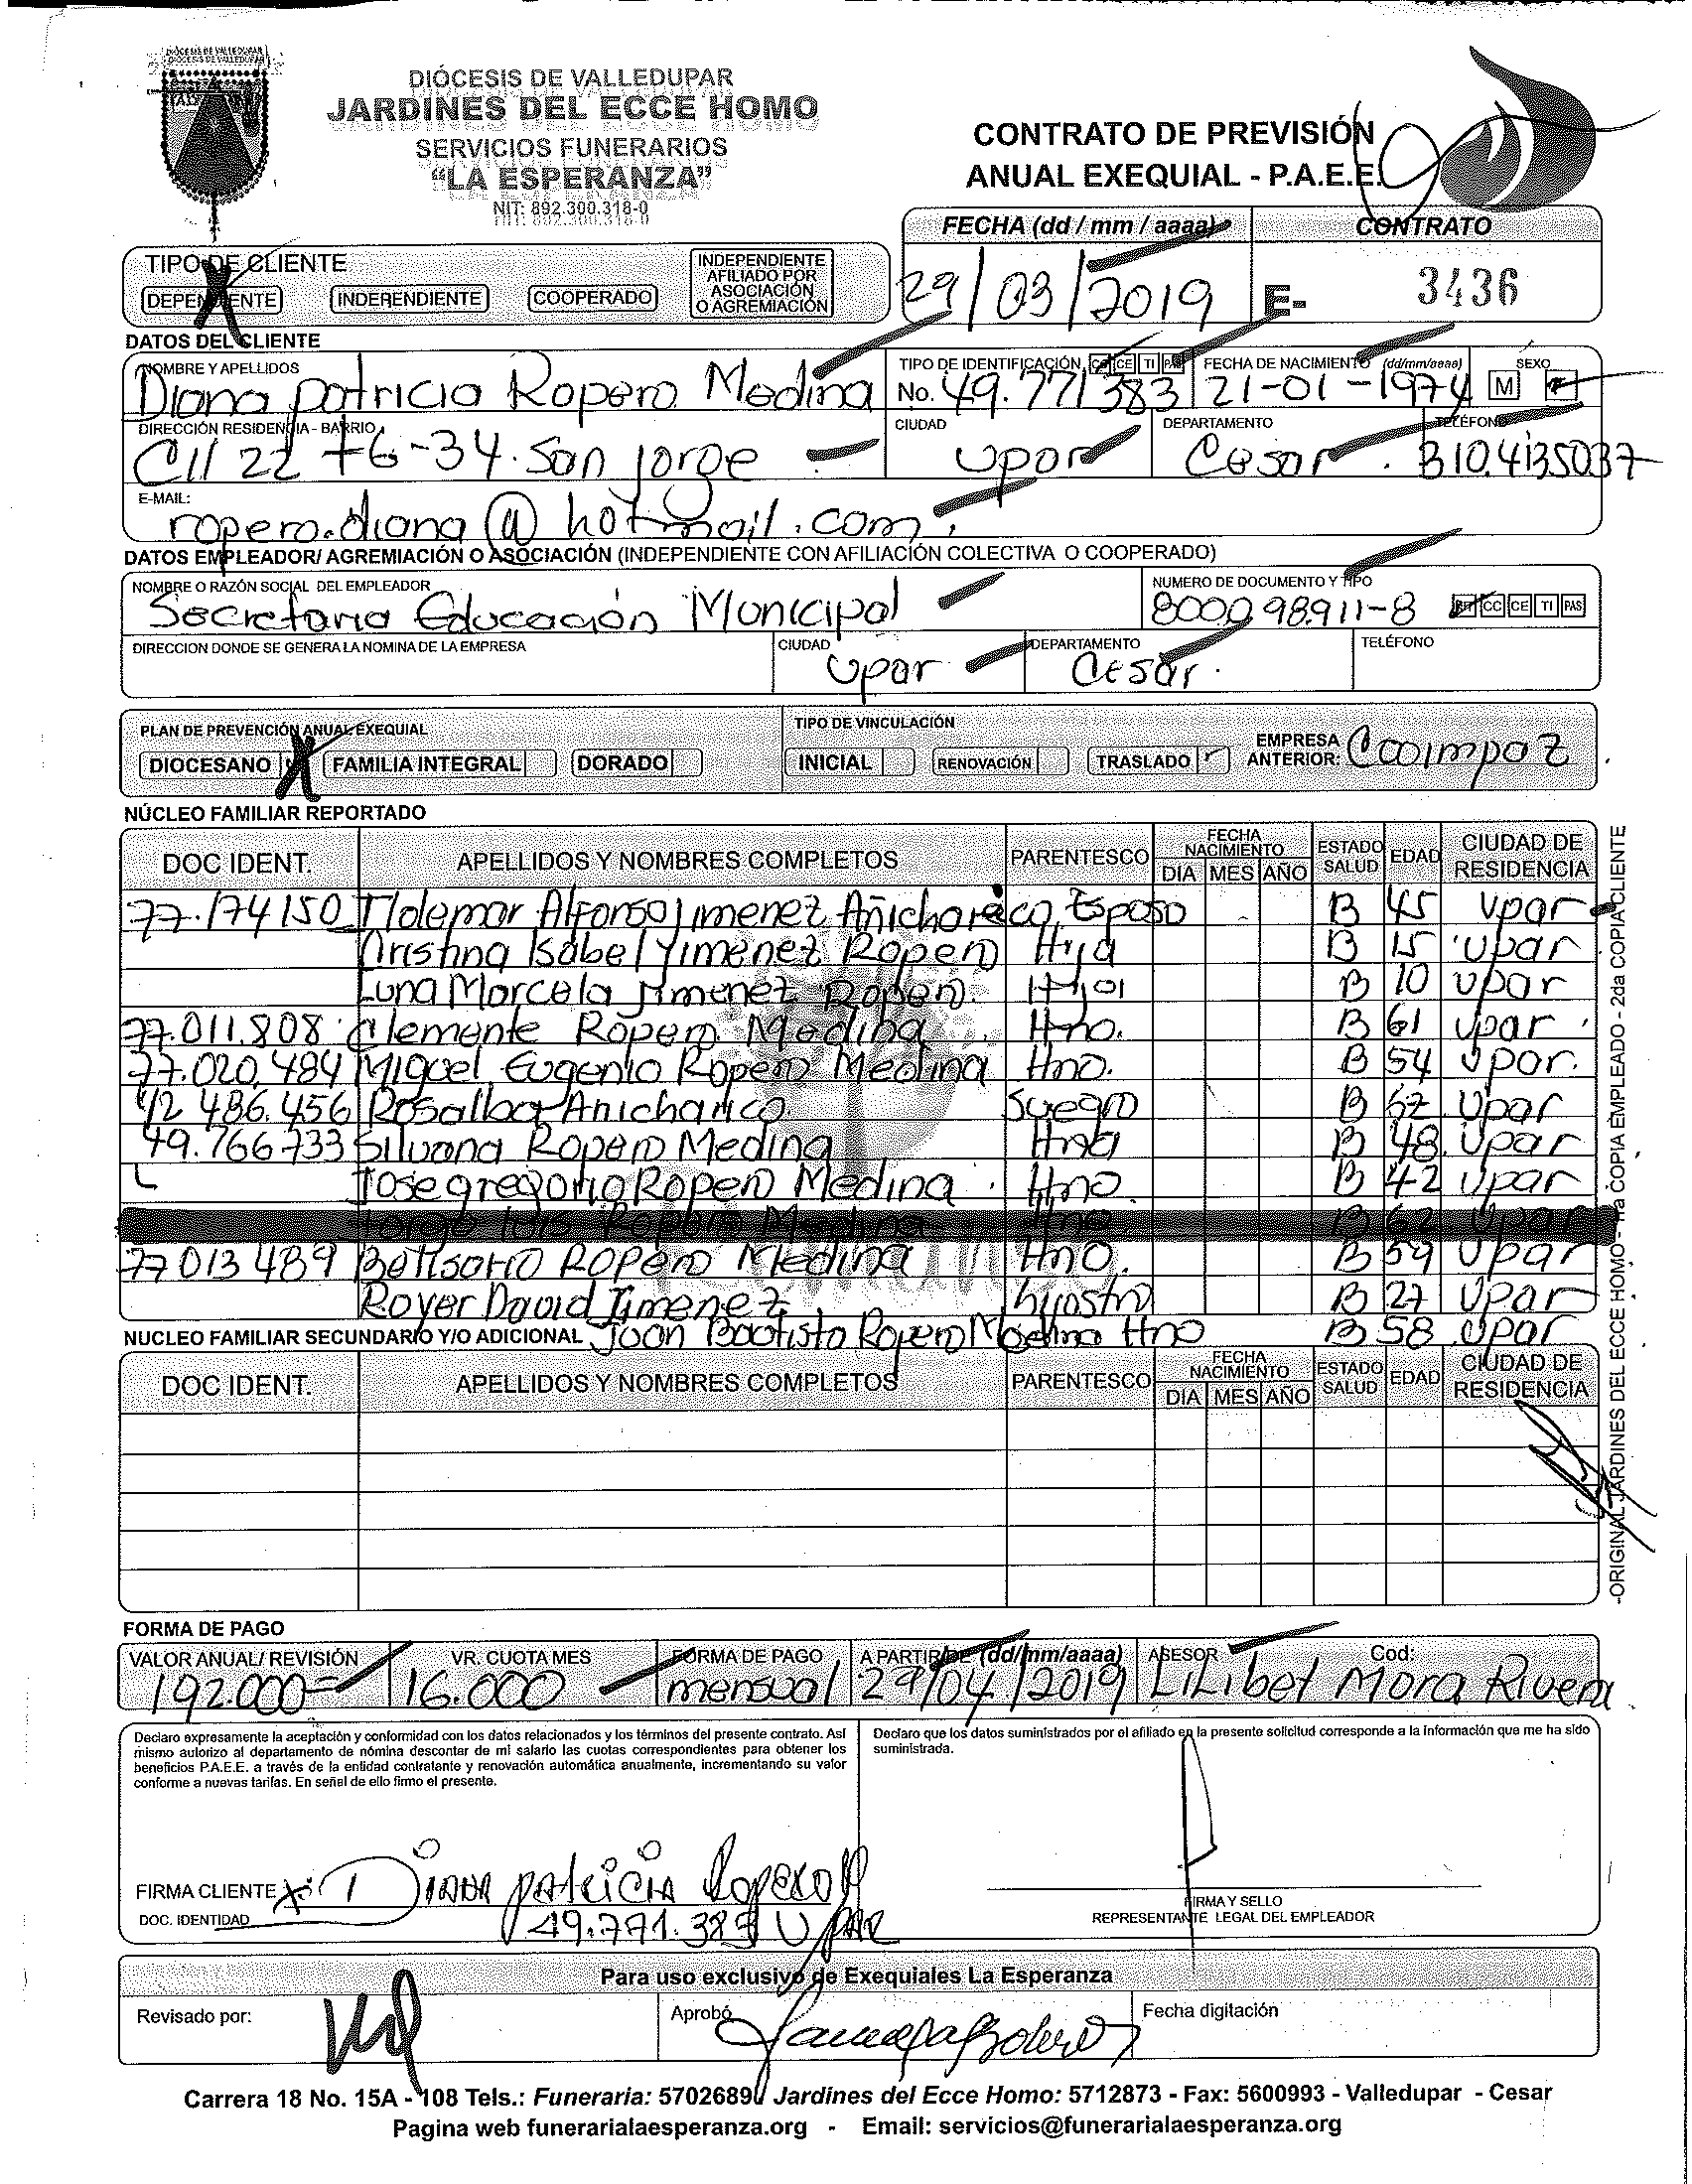 DIÓCESIS DE VALLEDUPAR
JARDINES DEL ECCE HOMO
SERVICIOS FUNERARIOS
"LA ESPERANZA"
NIT: 892.300.318-0
CONTRATO DE PREVISIÓN
ANUAL EXEQUIAL - P.A.E.E.
FECHA (dd / mm / aaaa) CONTRATO
29/03/2019 E- 3436
TIPO DE CLIENTE
DEPENDIENTE INDEPENDIENTE COOPERADO INDEPENDIENTE AFILIADO POR ASOCIACIÓN O AGREMIACIÓN
DATOS DEL CLIENTE
NOMBRE Y APELLIDOS TIPO DE IDENTIFICACIÓN CC CE TI PAS FECHA DE NACIMIENTO (dd/mm/aaaa) SEXO
Diana patricia Ropero Medina No. 49.771383 21-01-1974 M
DIRECCIÓN RESIDENCIA - BARRIO CIUDAD DEPARTAMENTO TELÉFONO
Cll 22 #6-34. San jorge Upar Cesar. 310.4135037
E-MAIL:
ropero.diana@hotmail.com.
DATOS EMPLEADOR/ AGREMIACIÓN O ASOCIACIÓN (INDEPENDIENTE CON AFILIACIÓN COLECTIVA O COOPERADO)
NOMBRE O RAZÓN SOCIAL DEL EMPLEADOR NUMERO DE DOCUMENTO Y TIPO
Secretaria Educación Municipal 800098.911-8 CC CE TI PAS
DIRECCION DONDE SE GENERA LA NOMINA DE LA EMPRESA CIUDAD DEPARTAMENTO TELÉFONO
Upar Cesar.
PLAN DE PREVENCIÓN ANUAL EXEQUIAL TIPO DE VINCULACIÓN
DIOCESANO FAMILIA INTEGRAL DORADO INICIAL RENOVACIÓN TRASLADO EMPRESA ANTERIOR: Cooimpaz
NÚCLEO FAMILIAR REPORTADO
DOC IDENT. APELLIDOS Y NOMBRES COMPLETOS PARENTESCO FECHA NACIMIENTO DIA MES AÑO ESTADO SALUD EDAD CIUDAD DE RESIDENCIA
77.174150 Ildemar Alfonso jimenez Añicharico Esposo B 45 Upar
Cristina Isabel Yimenez Ropero Hija B 15 Upar
Luna Marcela Jimenez Ropero. Hija B 10 Upar
77.011.808 Clemente Ropero Medina Hno. B 61 Upar
77.020.484 Miguel Eugenio Ropero Medina Hno. B 54 Upar.
42 486.456 Rosalba Anicharico. Suegro B 67 Upar
49.766733 Silvana Ropero Medina Hna B 48 Upar
Jose gregorio Ropero Medina Hno. B 42 Upar
Jorge Luis Ropero Medina Hno B 62 Upar
77013489 Belisario Ropero Medina Hno. B 59 Upar
Royer David Jimenez hijastro B 27 Upar
NUCLEO FAMILIAR SECUNDARIO Y/O ADICIONAL Juan Bautista Ropero Medina Hno B 58 Upar
DOC IDENT. APELLIDOS Y NOMBRES COMPLETOS PARENTESCO FECHA NACIMIENTO DIA MES AÑO ESTADO SALUD EDAD CIUDAD DE RESIDENCIA
-ORIGINAL JARDINES DEL ECCE HOMO - 1ra COPIA EMPLEADO - 2da COPIA CLIENTE
FORMA DE PAGO
VALOR ANUAL/ REVISIÓN VR. CUOTA MES FORMA DE PAGO A PARTIR DE (dd/mm/aaaa) ASESOR Cod:
192.000= 16.000 mensual 29/04/2019 LiLibet Mora Rivera
Declaro expresamente la aceptación y conformidad con los datos relacionados y los términos del presente contrato. Así
mismo autorizo al departamento de nómina descontar de mi salario las cuotas correspondientes para obtener los
beneficios P.A.E.E. a través de la entidad contratante y renovación automática anualmente, incrementando su valor
conforme a nuevas tarifas. En señal de ello firmo el presente.
Declaro que los datos suministrados por el afiliado en la presente solicitud corresponde a la información que me ha sido
suministrada.
FIRMA CLIENTE Diana patricia Ropero M
DOC. IDENTIDAD 49.771.383 UPAR
FIRMA Y SELLO
REPRESENTANTE LEGAL DEL EMPLEADOR
Para uso exclusivo de Exequiales La Esperanza
Revisado por: Aprobó Fecha digitación
Carrera 18 No. 15A - 108 Tels.: Funeraria: 5702689 Jardines del Ecce Homo: 5712873 - Fax: 5600993 - Valledupar - Cesar
Pagina web funerarialaesperanza.org - Email: servicios@funerarialaesperanza.org